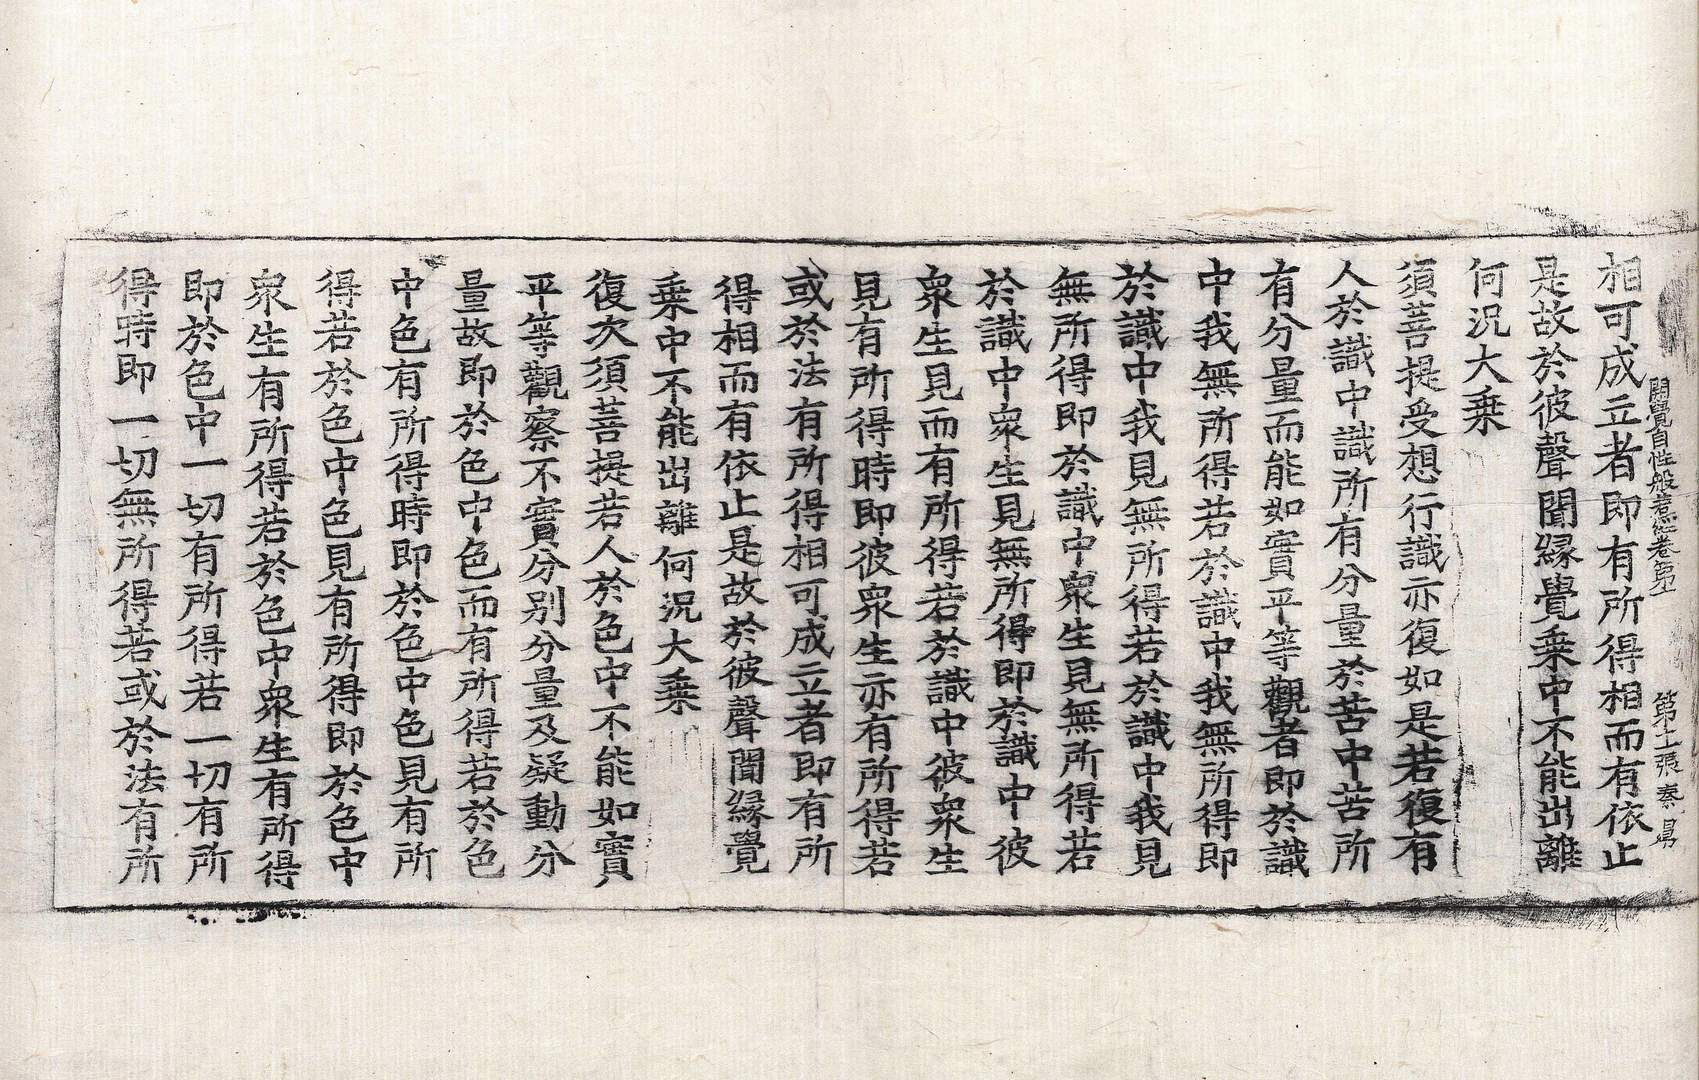 開覺自性般若經卷第上 第十張 秦 昌
相可成立者即有所得相而有依止
是故於彼聲聞緣覺乗中不能出離
何況大乗
須菩提受想行識亦復如是若復有
人於識中識所有分量於苦中苦所
有分量而能如實平等觀者即於識
中我無所得若於識中我無所得即
於識中我見無所得若於識中我見
無所得即於識中衆生見無所得若
於識中衆生見無所得即於識中彼
衆生見而有所得若於識中彼衆生
見有所得時即彼衆生亦有所得若
或於法有所得相可成立者即有所
得相而有依止是故於彼聲聞緣覺
乗中不能出離何況大乗
復次須菩提若人於色中不能如實
平等觀察不實分別分量及疑動分
量故即於色中色而有所得若於色
中色有所得時即於色中色見有所
得若於色中色見有所得即於色中
衆生有所得若於色中衆生有所得
即於色中一切有所得若一切有所
得時即一切無所得若或於法有所